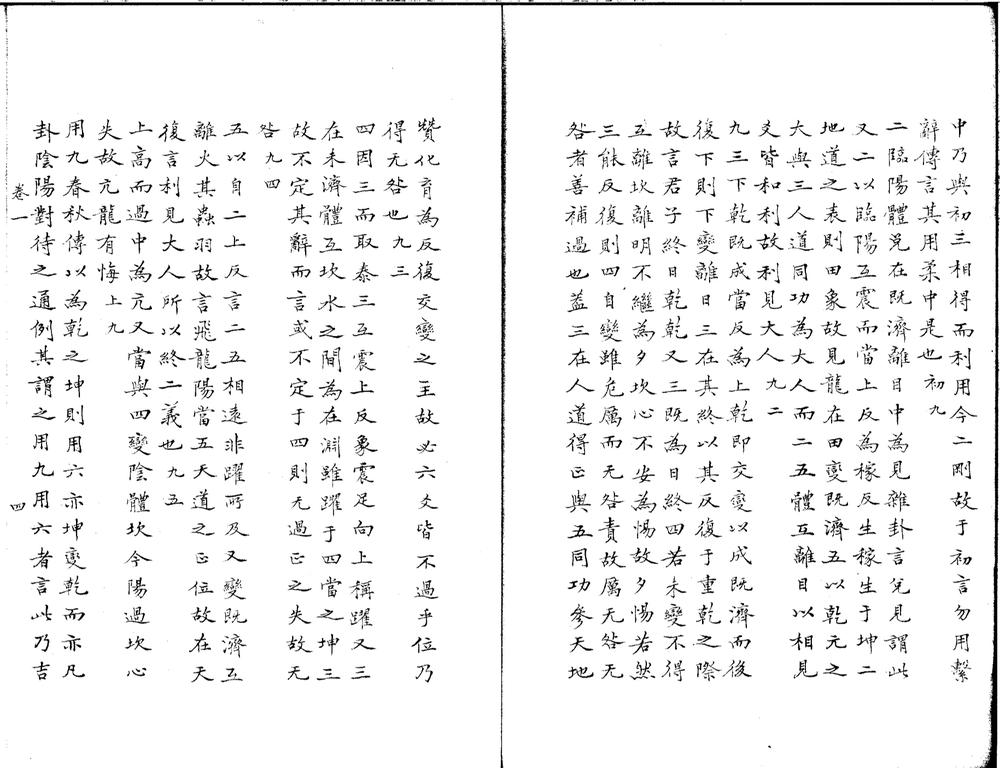 中乃與初三相得而利用今二剛故于初言勿用繫
辭傳言其用柔中是也初九
二臨陽體兌在既濟離目中為見雜卦言兌見謂此
又二以臨陽互震而當上反為稼反生稼生于坤二
地道之表則田象故見龍在田變既濟五以乾元之
大與三人道同功為大人而二五體互離目以相見
爻皆和利故利見大人九二
九三下乾既成當反為上乾即交變以成既濟而後
復下則下變離日三在其終以其反復于重乾之際
故言君子終日乾乾又三既為日終四若未變不得
五離坎離明不繼為夕坎心不安為惕故夕惕若然
三能反復則四自變雖危厲而无咎責故厲无咎无
咎者善補過也蓋三在人道得正與五同功參天地
贊化育為反復交變之主故必六爻皆不過乎位乃
得无咎也九三
四因三而取泰三互震上反象震足向上稱躍又三
在未濟體互坎水之間為在淵雖躍于四當之坤三
故不定其辭而言或不定于四則无過正之失故无
咎九四
五以自二上反言二五相遠非躍所及又變既濟互
離火其蟲羽故言飛龍陽當五天道之正位故在天
復言利見大人所以終二義也九五
上高而過中為亢又當與四變陰體坎今陽過坎心
失故亢龍有悔上九
用九春秋傳以為乾之坤則用六亦坤變乾而亦凡
卦陰陽對待之通例其謂之用九用六者言此乃吉
卷一
四